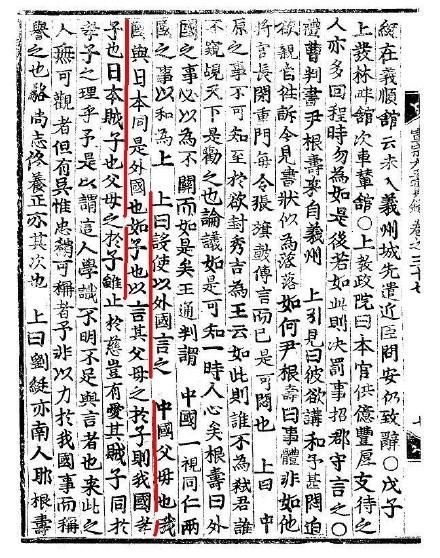 綏在義順館云未入義州城先遣近臣問安仍致辭○戊子
上發林畔館次車輦館○上敎政院曰本官供億豐厚支待之
人亦多回程時勿為如是後若如此則決罰事招郡守言之○
禮曹判書尹根壽來自義州 上引見曰彼欲講和乎甚悶迫
欲親官往訴今見書狀似為落落如何尹根壽曰事體非如他
將官長閉重門每令張旗皷傳言而已是可悶也 上曰中
原之事不可知至於欲封秀吉為王云如此則誰不為弒君誰
不窺覘天下是勸之也論議如是可知一時人心矣根壽曰外
國之事必以為不關而如是矣王通判謂 中國一視同仁兩
國之事以和為上 上曰設使以外國言之 中國父母也我
國與日本同是外國也如子也以言其父母之於子則我國孝
子也日本賊子也父母之於子雖止於慈豈有愛其賊子同於
孝子之理乎予是以謂這人學識不明不足與言者也來此之
人無可觀者但有吳惟忠稍可稱者予非以力於我國事而稱
譽之也駱尚志佟養正亦其次也 上曰劉綎亦南人耶根壽